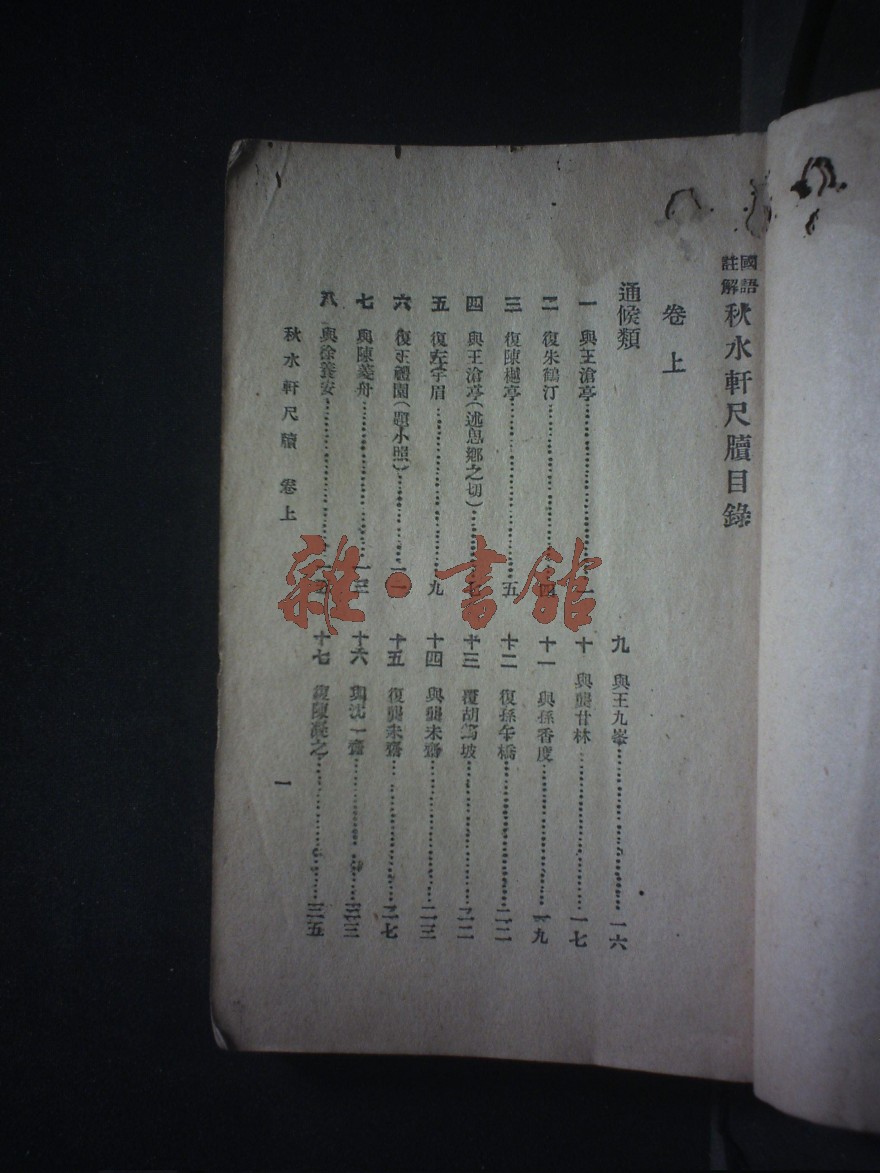 國語註解秋水軒尺牘目錄
卷上
通候類
一 與王滄亭……一
二 復朱鶴汀……四
三 復陳樾亭……五
四 與王滄亭(述思鄉之切)……七
五 復左宇眉……九
六 復王禮園(題小照)……一一
七 與陳菱舟……一三
八 與徐養安……
九 與王九峯……一六
十 與龔甘林……一七
十一 與孫香度……一九
十二 復孫午橋……二二
十三 覆胡篤坡……二二
十四 與龔未齋……二三
十五 復龔未齋……二七
十六 與沈一齋……三三
十七 復陳凝之……三五
秋水軒尺牘 卷上 一
雜·書館